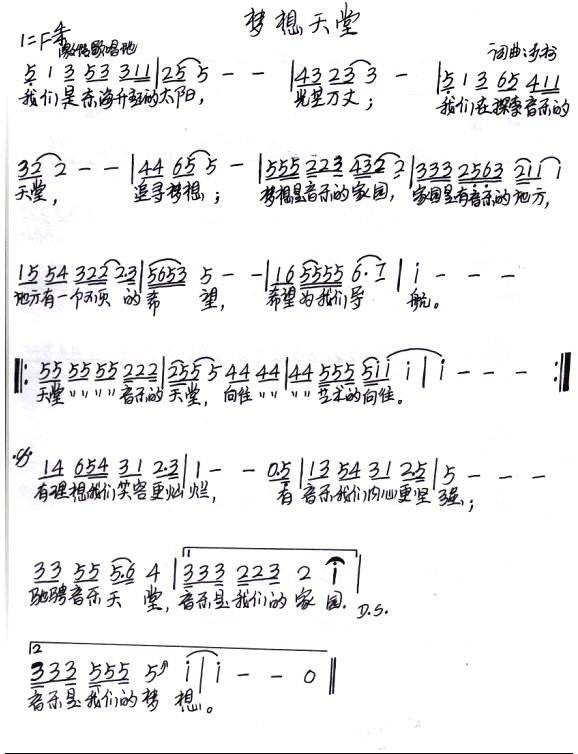 梦想天堂
1=F 4/4
激情歌唱地
词曲:
5 1 3 53 311 | 25 5 - - | 43 23 3 - | 5 1 3 65 411
我们是东海升起的太阳, 光芒万丈; 我们在探索音乐的
32 2 - - | 44 65 5 - | 555 223 432 2 | 333 2563 211 i
天堂, 追寻梦想; 梦想是音乐的家园, 家园是有音乐的地方,
15 54 322 23 | 5653 5 - - | 16 5555 6. 7 | i - - -
地方有一个不灭的希望, 希望为我们导航。
‖: 55 55 55 222 | 255 5 44 44 | 44 555 5ii i | i - - - :‖
天堂 〃 〃 〃 〃 音乐的天堂, 向往 〃 〃 〃 〃 艺术的向往。
14 654 31 2.3 | 1 - - 0.5 | 13 54 31 2.5 | 5 - - -
有理想我们笑容更灿烂, 有音乐我们内心更坚强;
33 55 5.6 4 | 333 223 2 i |
驰骋音乐天堂, 音乐是我们的家园. D.S.
2
333 555 5 i | i - - 0 ‖
音乐是我们的梦想。